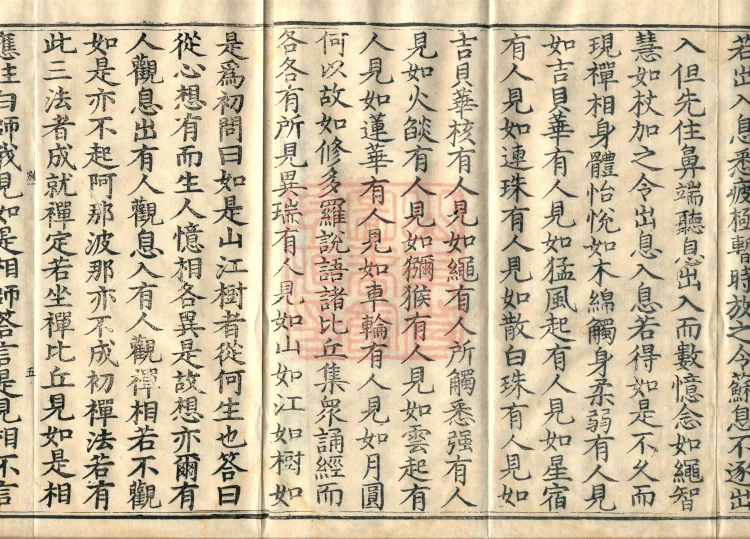 若出入息悉疲極暫時放之令蘇息不逐出
入但先住鼻端聽息出入而數憶念如繩智
慧如杖加之令出息入息若得如是不久而
現禪相身體怡悅如木綿觸身柔弱有人見
如吉貝華有人見如猛風起有人見如星宿
有人見如連珠有人見如散白珠有人見如
吉貝華核有人見如繩有人所觸悉强有人
見如火燄有人見如獼猴有人見如雲起有
人見如蓮華有人見如車輪有人見如月圓
何以故如修多羅說語諸比丘集衆誦經而
各各有所見異瑞有人見如山如江如樹如
是爲初問曰如是山江樹者從何生也答曰
從心想有而生人憶相各異是故想亦爾有
人觀息出有人觀息入有人觀禪相若不觀
如是亦不起阿那波那亦不成初禪法若有
此三法者成就禪定若坐禪比丘見如是相
五
應往白師我見如是相師答言是見相不言